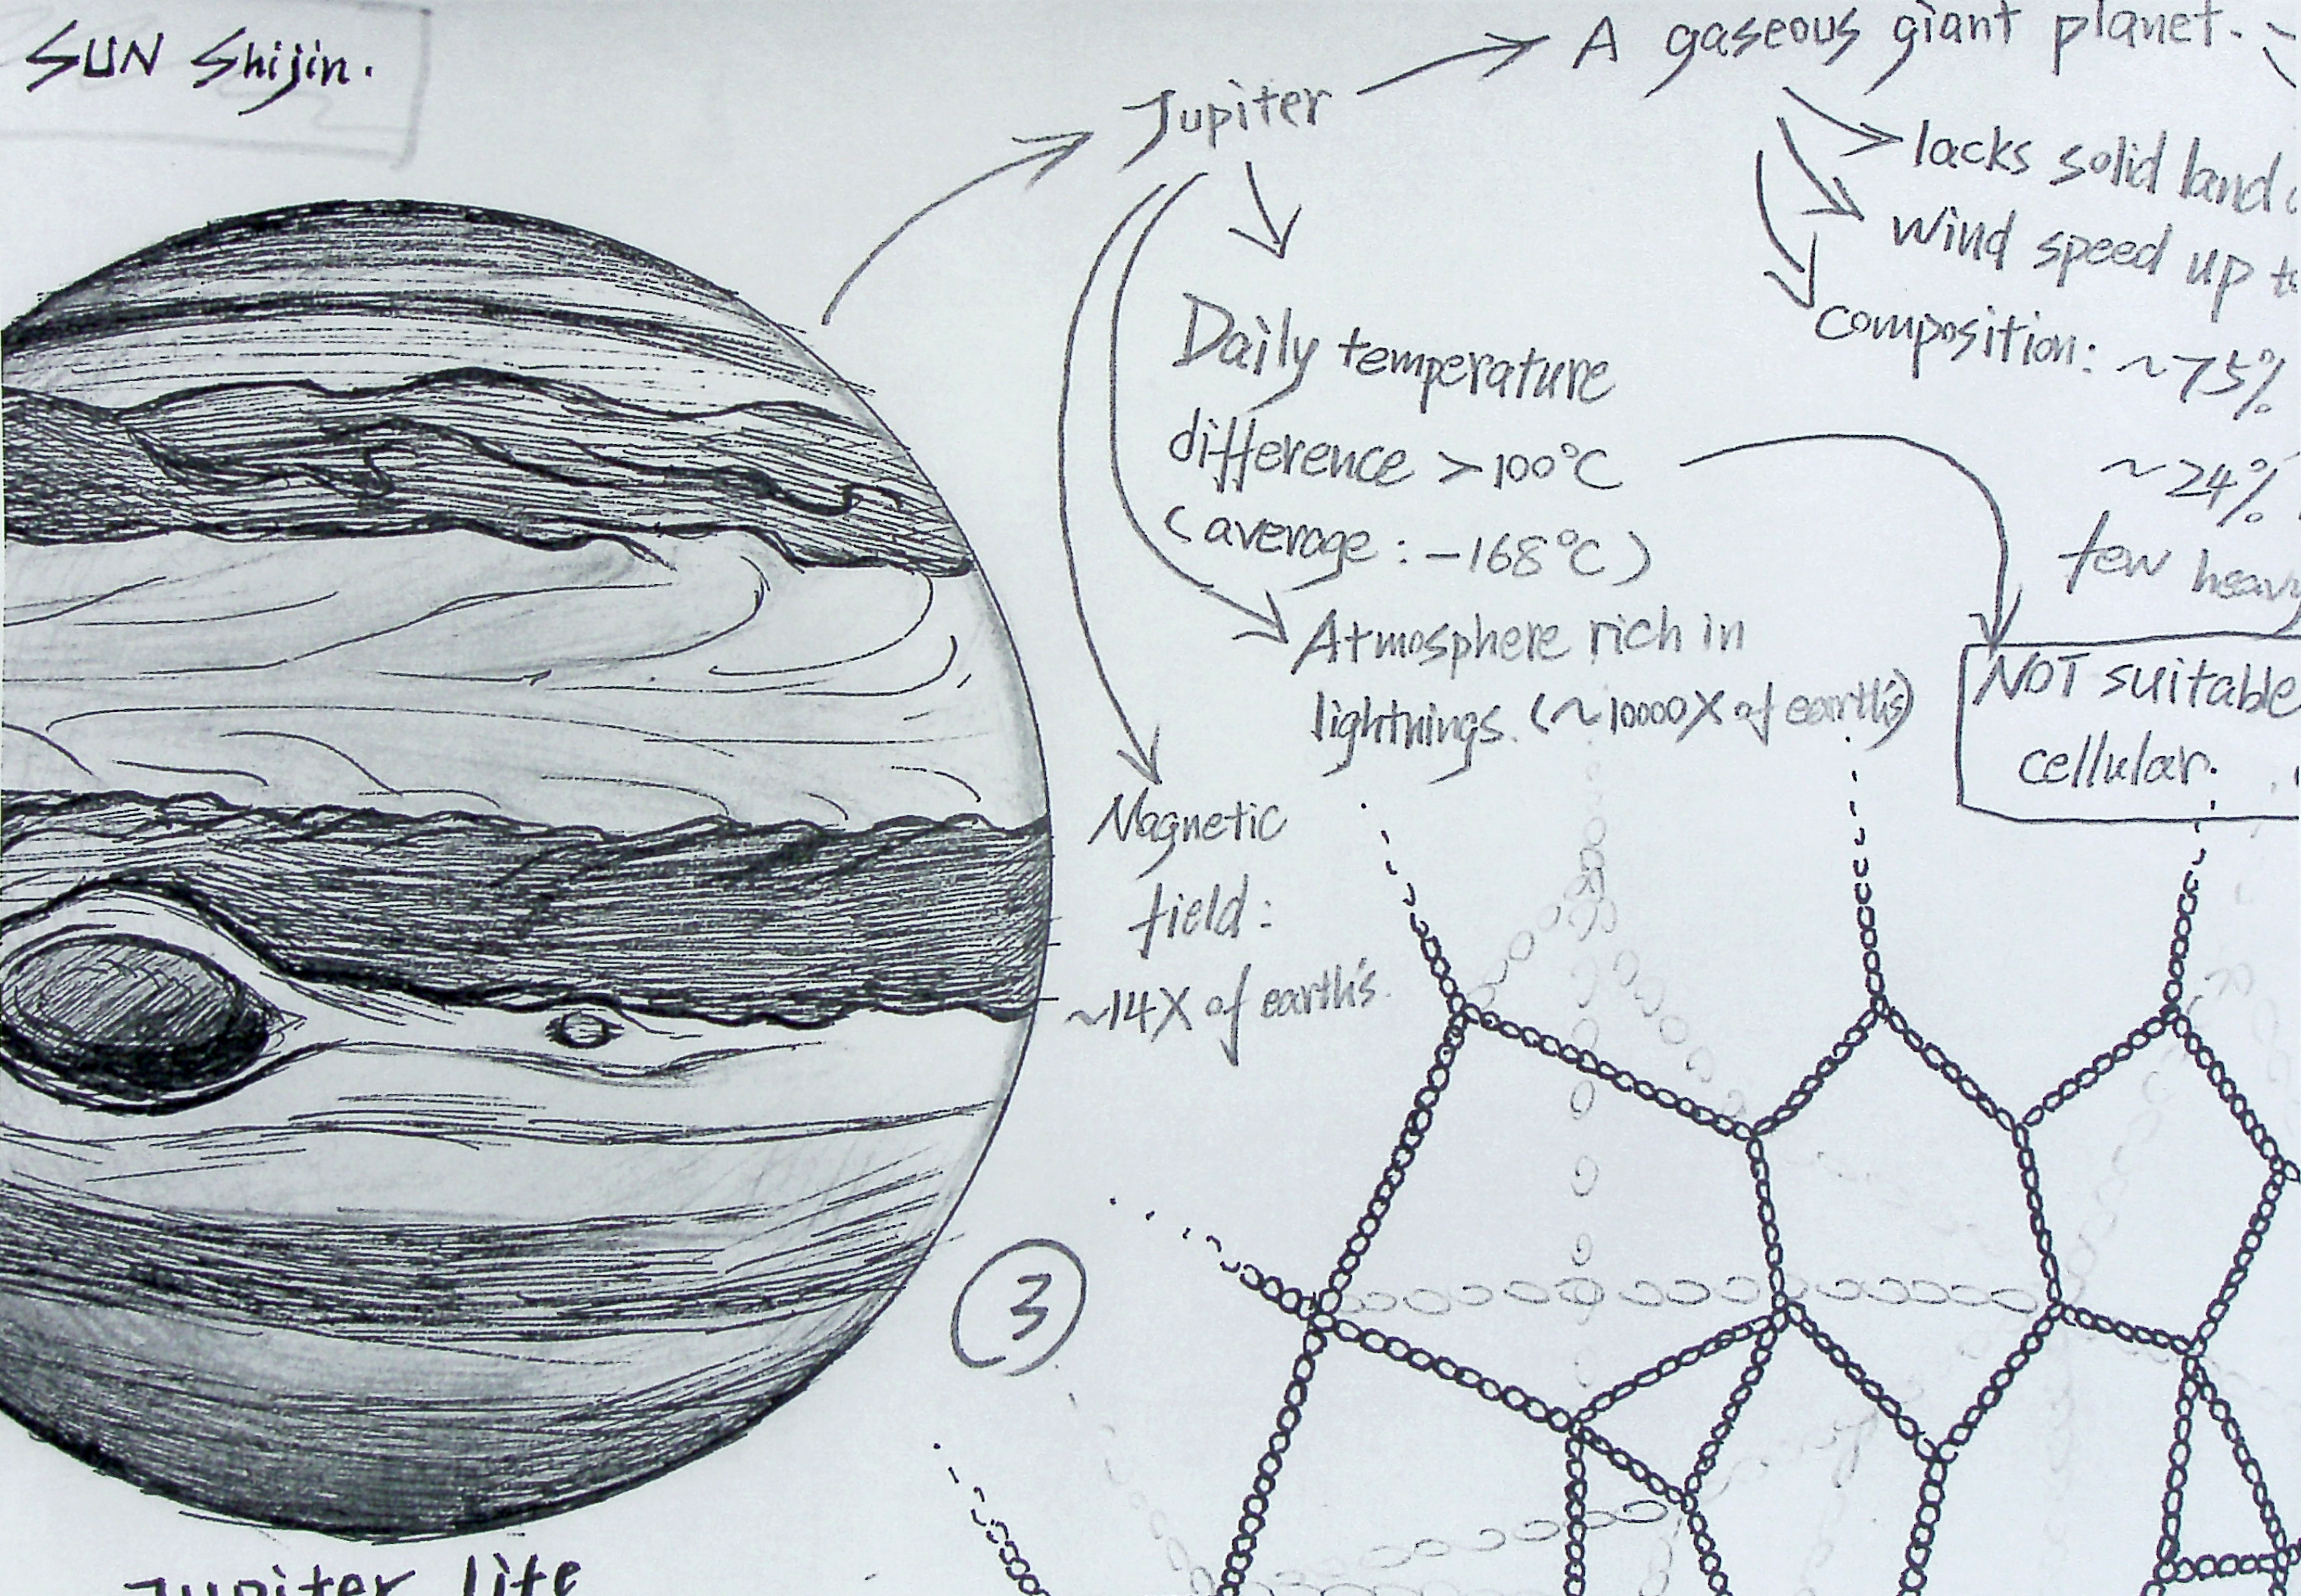 SUN Shijin.
Jupiter
A gaseous giant planet.
lacks solid land
wind speed up
composition: ~75%
~24%
few heavy
Daily temperature
difference >100°C
(average: -168°C)
Atmosphere rich in
lightnings. (~10000X of earth's)
NOT suitable
cellular.
Magnetic
field:
~14X of earth's.
3
Jupiter life